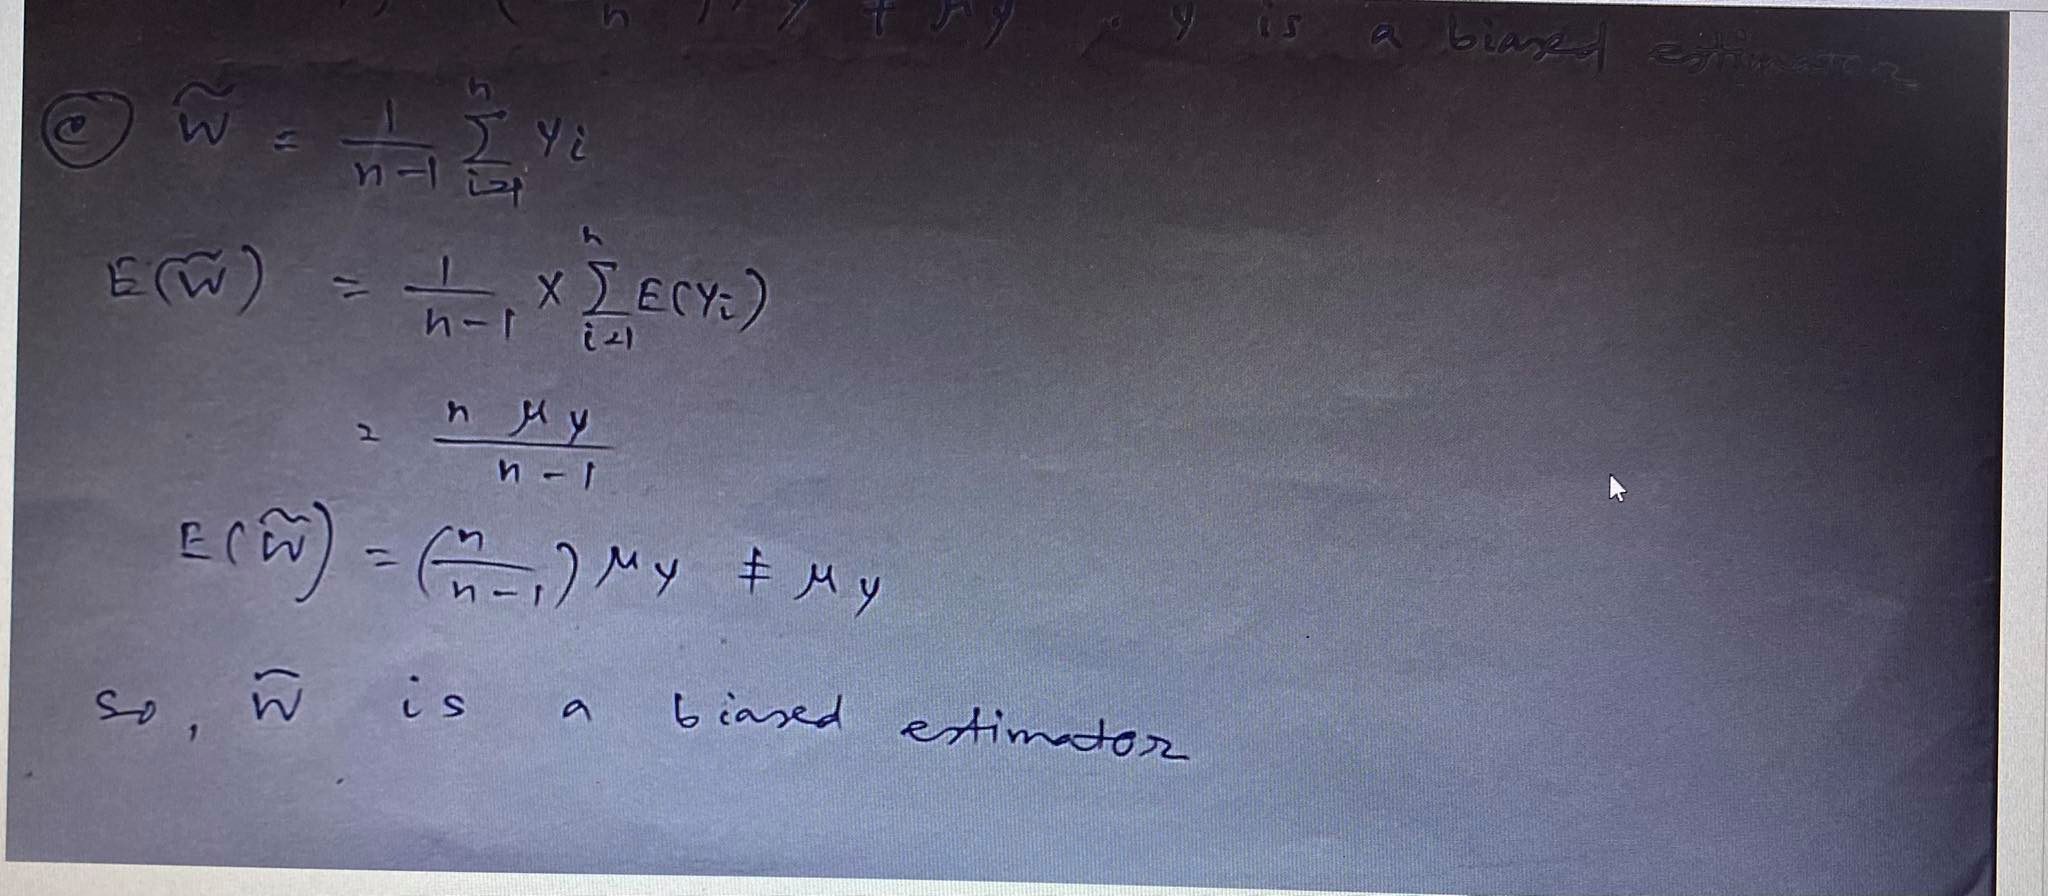 n y ≠ μy . y is a biased estimator
(c) W̃ = 1/(n-1) Σ_{i=1}^{n} Yi
E(W̃) = 1/(n-1) × Σ_{i=1}^{n} E(Yi)
= n μy / (n-1)
E(W̃) = (n/(n-1)) μy ≠ μy
so, W̃ is a biased estimator